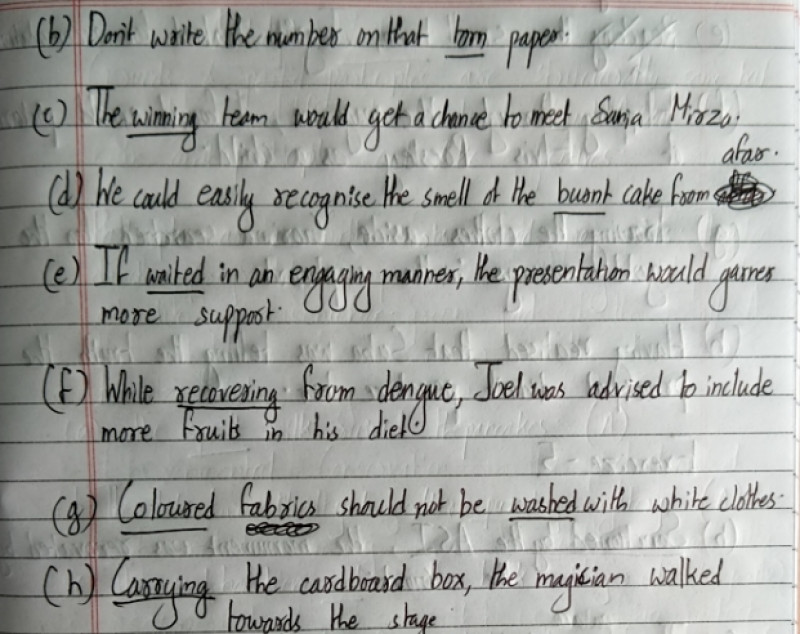 (b) Don't write the number on that torn paper.
(c) The winning team would get a chance to meet Sania Mirza.
afar.
(d) We could easily recognise the smell of the burnt cake from
(e) If waited in an engaging manner, the presentation would garner
more support.
(f) While recovering from dengue, Joel was advised to include
more fruits in his diet.
(g) Coloured fabrics should not be washed with white clothes.
(h) Carrying the cardboard box, the magician walked
towards the stage